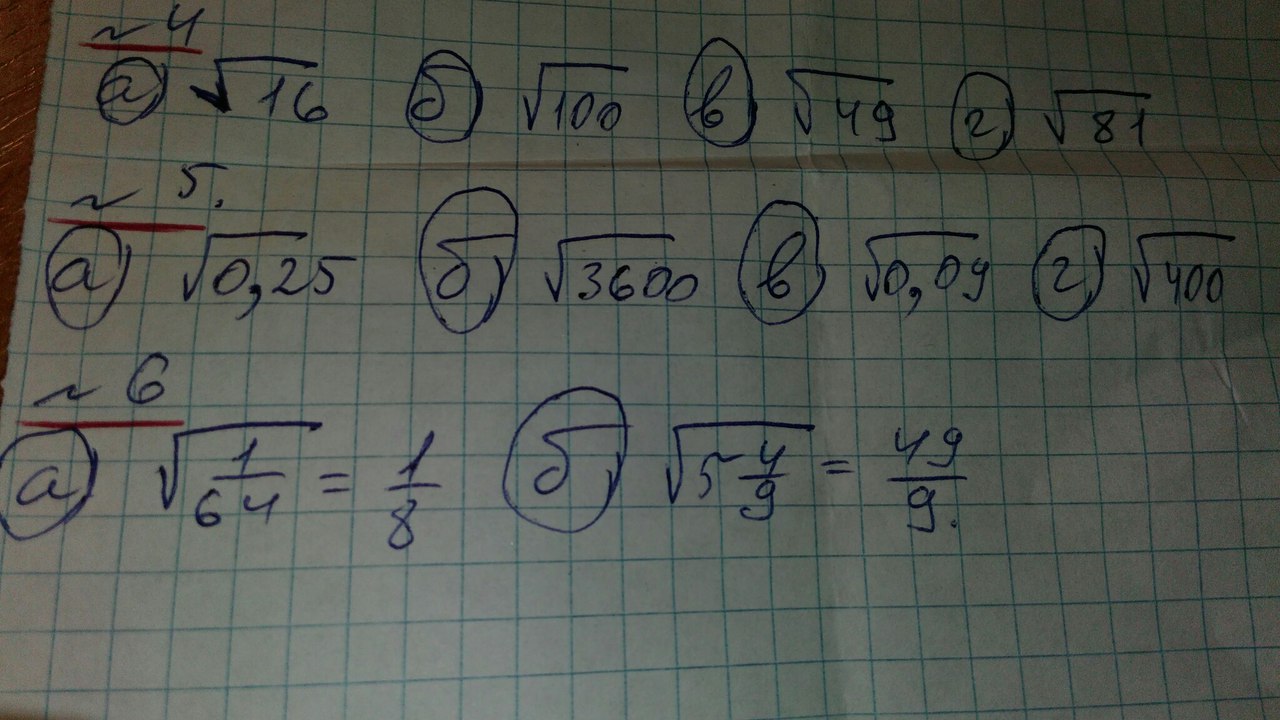 № 4
а) √16 б) √100 в) √49 г) √81
№ 5.
а) √0,25 б) √3600 в) √0,09 г) √400
№ 6
а) √(1/64) = 1/8 б) √(5 4/9) = 49/9.